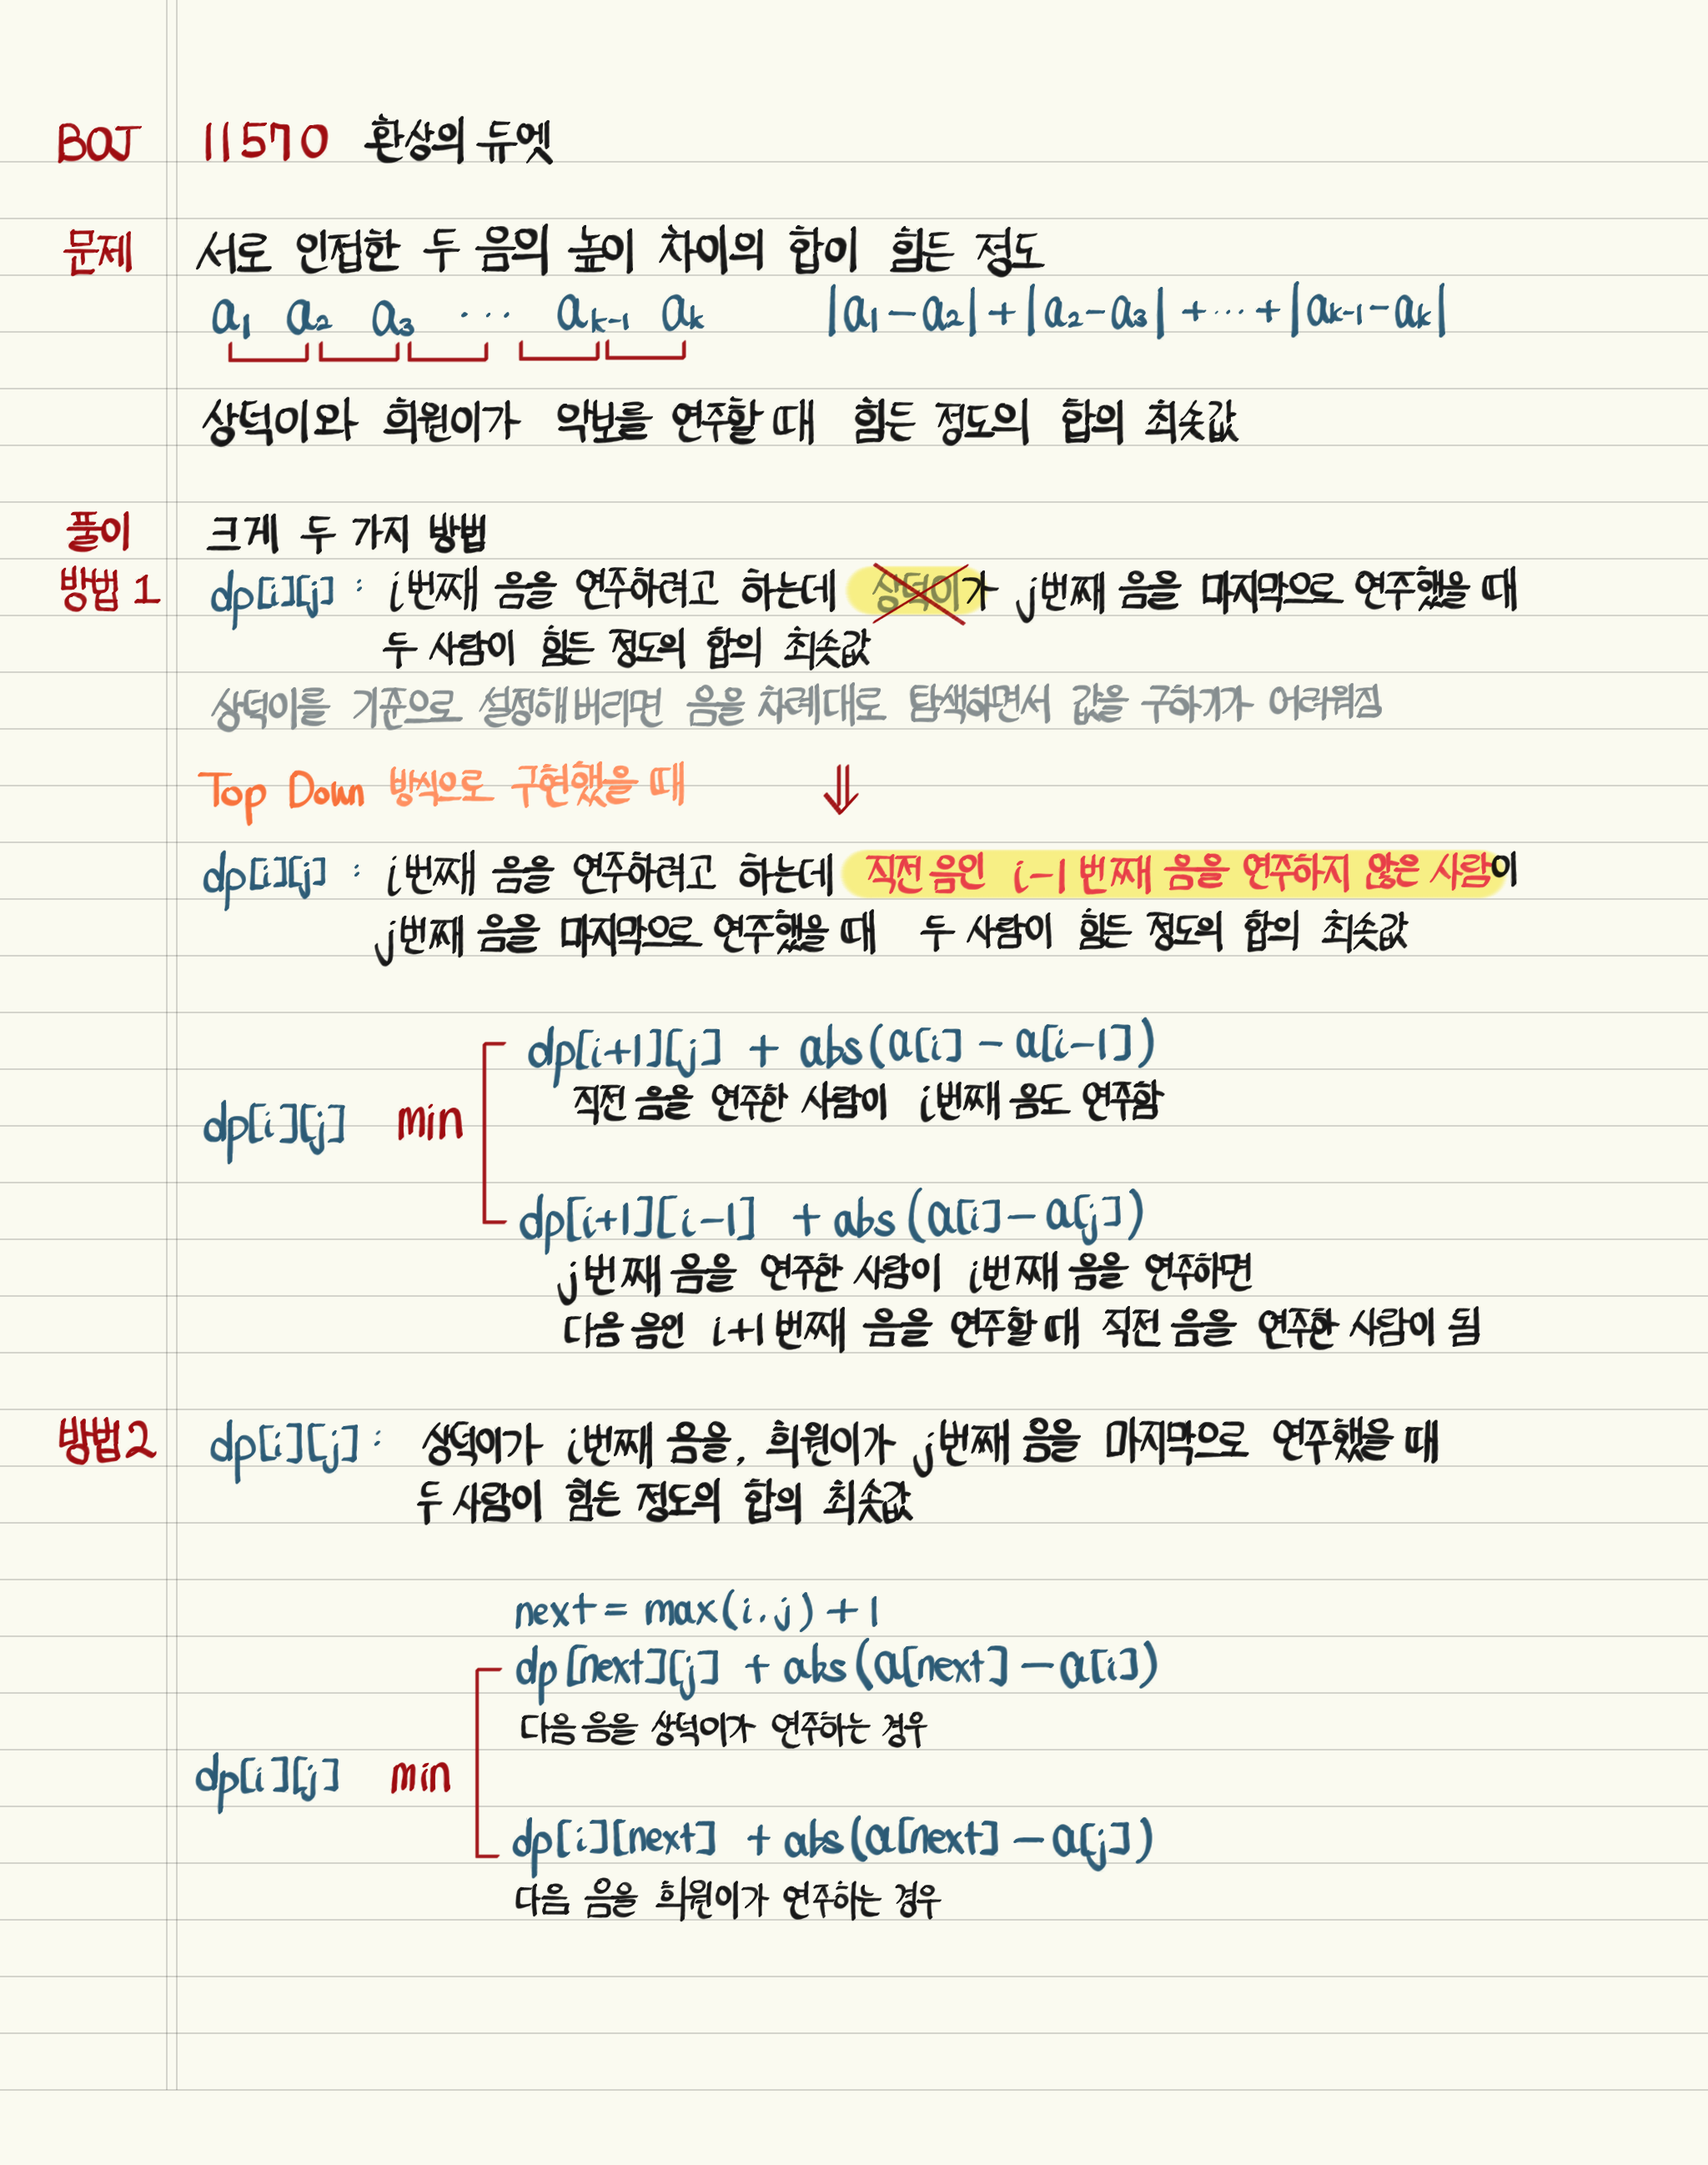 BOJ 11570 환상의 듀엣
문제 서로 인접한 두 음의 높이 차이의 합이 힘든 정도
a₁ a₂ a₃ ··· aₖ₋₁ aₖ |a₁-a₂|+|a₂-a₃|+···+|aₖ₋₁-aₖ|
상덕이와 희원이가 악보를 연주할 때 힘든 정도의 합의 최솟값
풀이 크게 두 가지 방법
방법 1 dp[i][j] : i번째 음을 연주하려고 하는데 상덕이가 j번째 음을 마지막으로 연주했을 때
두 사람이 힘든 정도의 합의 최솟값
상덕이를 기준으로 설정해버리면 음을 차례대로 탐색하면서 값을 구하기가 어려워짐
Top Down 방식으로 구현했을 때 ⇓
dp[i][j] : i번째 음을 연주하려고 하는데 직전 음인 i-1 번째 음을 연주하지 않은 사람이
j번째 음을 마지막으로 연주했을 때 두 사람이 힘든 정도의 합의 최솟값
dp[i+1][j] + abs(a[i] - a[i-1])
직전 음을 연주한 사람이 i번째 음도 연주함
dp[i][j] min
dp[i+1][i-1] + abs(a[i]-a[j])
j번째 음을 연주한 사람이 i번째 음을 연주하면
다음 음인 i+1 번째 음을 연주할 때 직전 음을 연주한 사람이 됨
방법2 dp[i][j] : 상덕이가 i번째 음을, 희원이가 j번째 음을 마지막으로 연주했을 때
두 사람이 힘든 정도의 합의 최솟값
next = max(i, j) + 1
dp[next][j] + abs(a[next] - a[i])
다음 음을 상덕이가 연주하는 경우
dp[i][j] min
dp[i][next] + abs(a[next] - a[j])
다음 음을 희원이가 연주하는 경우